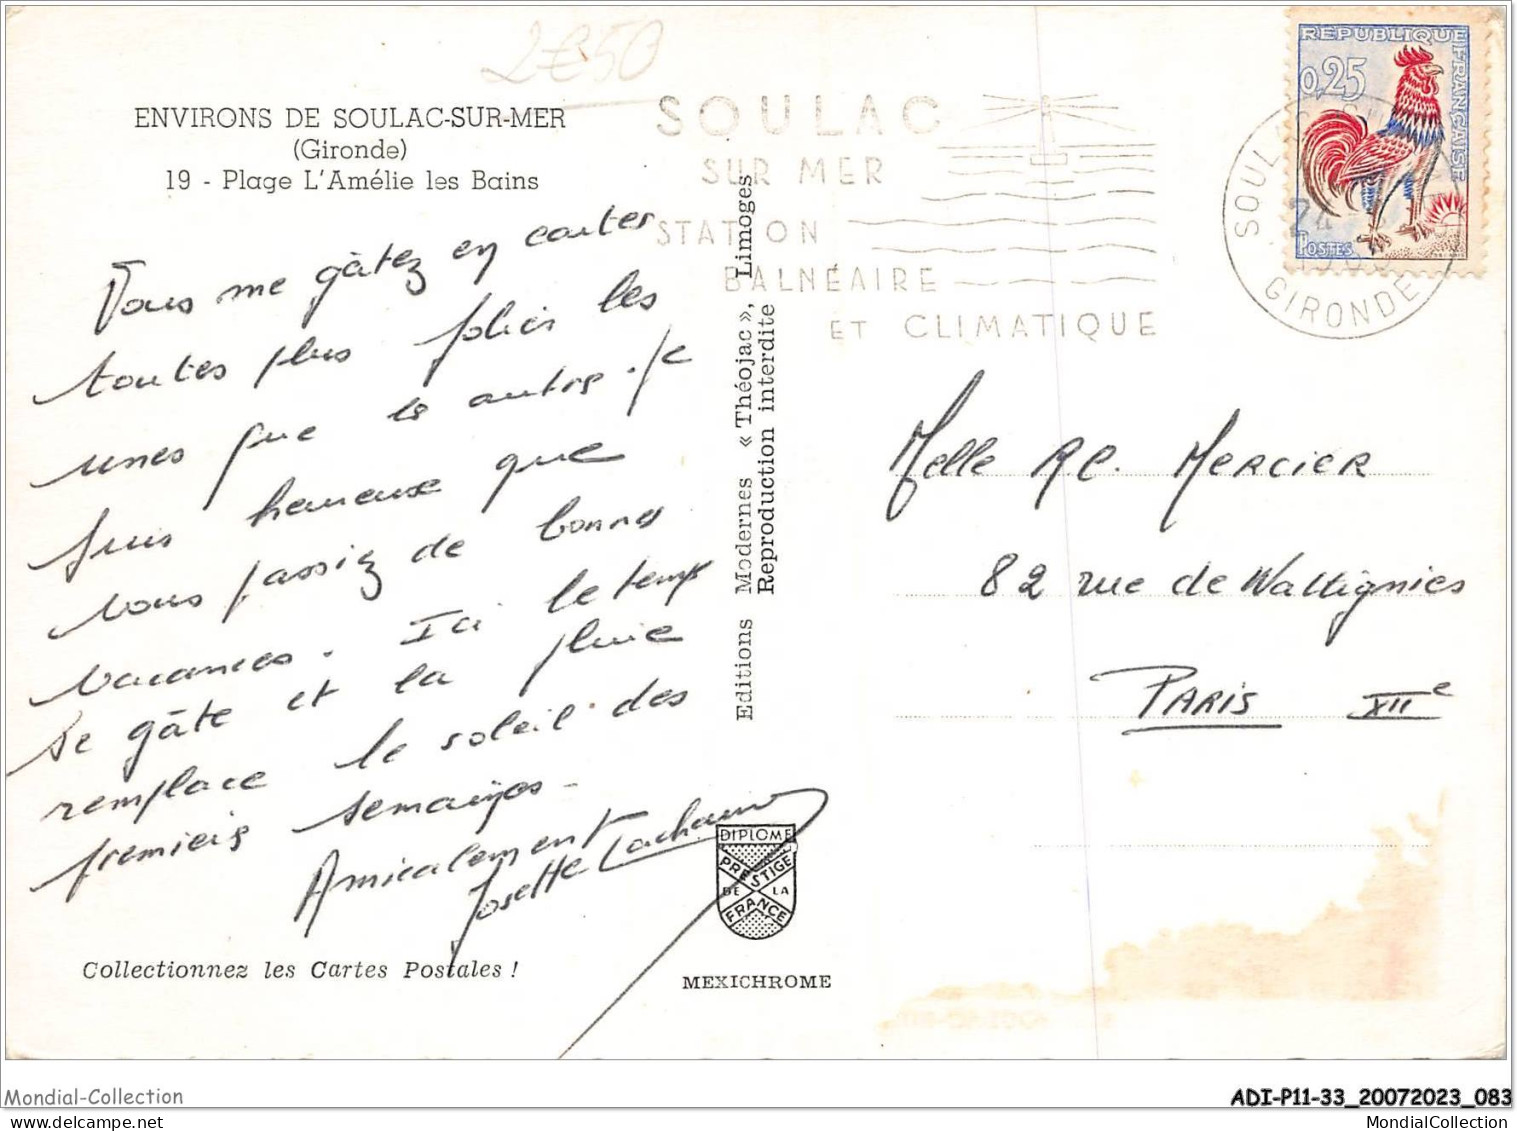 2€50
ENVIRONS DE SOULAC-SUR-MER
(Gironde)
19 - Plage L'Amélie les Bains
Vous me gâtez en cartes
toutes plus jolies les
unes que les autres. Je
suis heureuse que
vous passiez de bonnes
vacances. Ici le temps
se gâte et la pluie
remplace le soleil des
premiers semaines -
Amicalement
Josette
Collectionnez les Cartes Postales !
Editions Modernes « Théojac », Limoges
Reproduction interdite
DIPLOME
PRESTIGE
DE LA
FRANCE
MEXICHROME
SOULAC
SUR MER
STATION
BALNÉAIRE
ET CLIMATIQUE
SOULAC
24
GIRONDE
RÉPUBLIQUE FRANÇAISE
0,25
POSTES
Melle R.C. MERCIER
82 rue de Wattignies
PARIS XIIe
Mondial-Collection
ADI-P11-33_20072023_083
MondialCollection